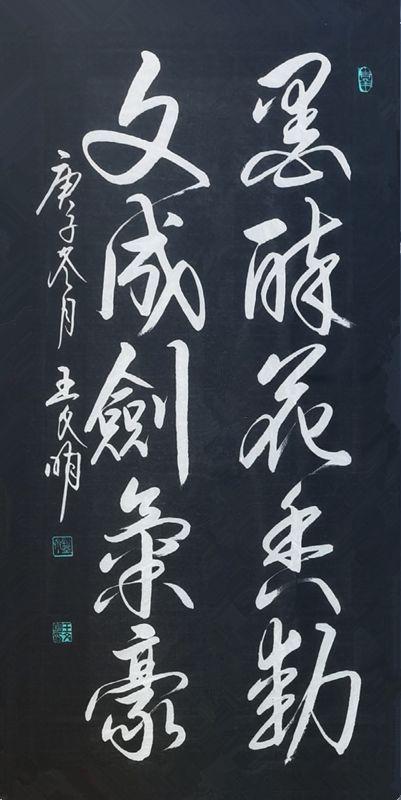 墨醉花香動
文成劍氣豪
庚子冬月 王民明